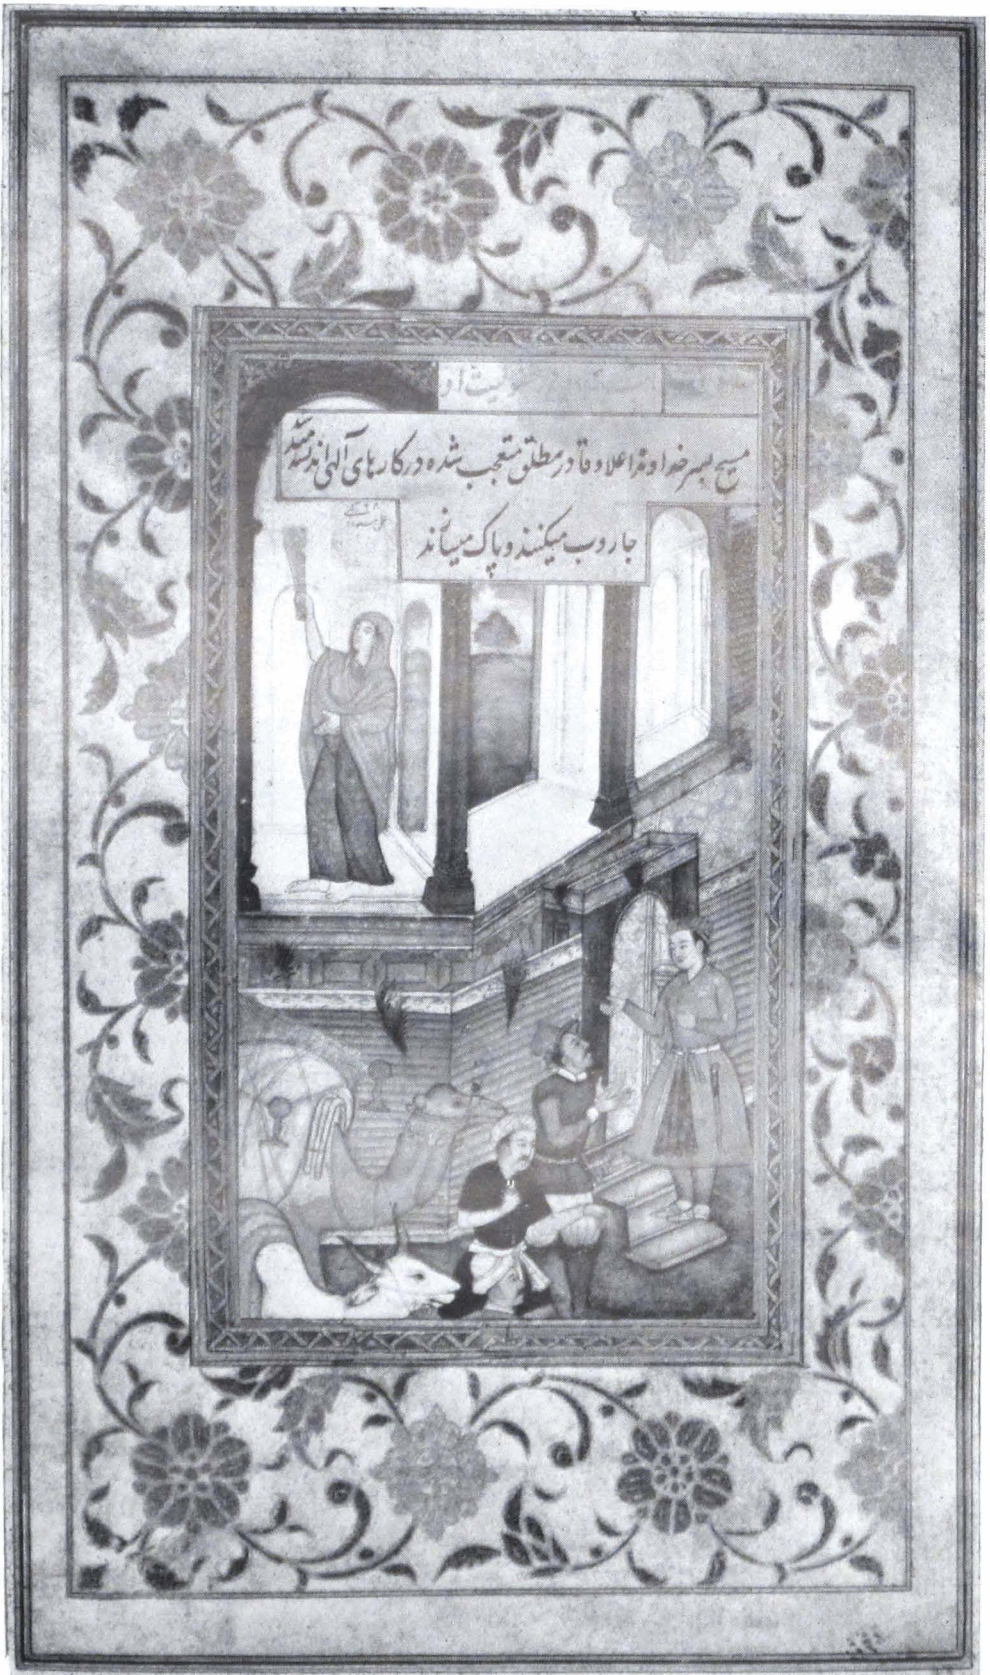 مسیح پسر خداوند اعلا و قادر مطلق متعجب شده در کارهای الهی اندیشه میکند
جاروب میکنند و پاک میسازند